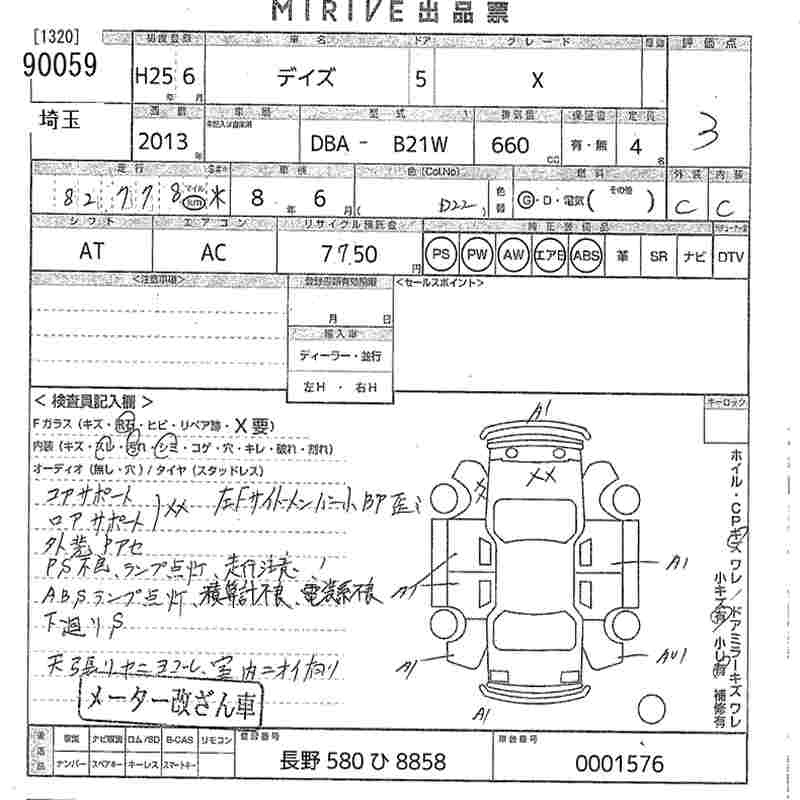 MIRIVE 出品票
[1320]
90059
埼玉
初度登録 車名 ドア グレード 評価点
H25 6 デイズ 5 X 3
年 月
西暦 車歴 型式 排気量 保証書 定員
2013 年 DBA - B21W 660 CC 有・無 4 名
走行 車検 色(Col.No) 燃料 外装 内装
82778 マイル km 8 年 6 月 D22 色替 G・D・電気( その他 ) C C
シフト エアコン リサイクル預託金 純正装備品
AT AC 7750 円 PS PW AW エアB ABS 革 SR ナビ DTV
<注意事項> <セールスポイント>
月 日
輸入車
ディーラー・並行
左H ・ 右H
< 検査員記入欄 > キーロック
Fガラス(キズ・飛石・ヒビ・リペア跡・X要)
内装(キズ・スレ・汚れ・シミ・コゲ・穴・キレ・破れ・割れ)
オーディオ(無し・穴)/タイヤ(スタッドレス)
コアサポート
ロアサポート XX
外装 Pアセ
PS不良、ランプ点灯、走行注意!
ABSランプ点灯、積算計不良、電装系不良
下廻りS
メーター改ざん車
A1
XX
A1
A1
A1
AU1
A1
ホイル・CPキズ ワレ/ドアミラーキズ ワレ
小キズ有/小凹有 補修有
後送品 取説 ナビ取説 ロム/SD B-CAS リモコン 登録番号 車台番号
ナンバー スペアキー キーレス スマートキー 長野 580 ひ 8858 0001576